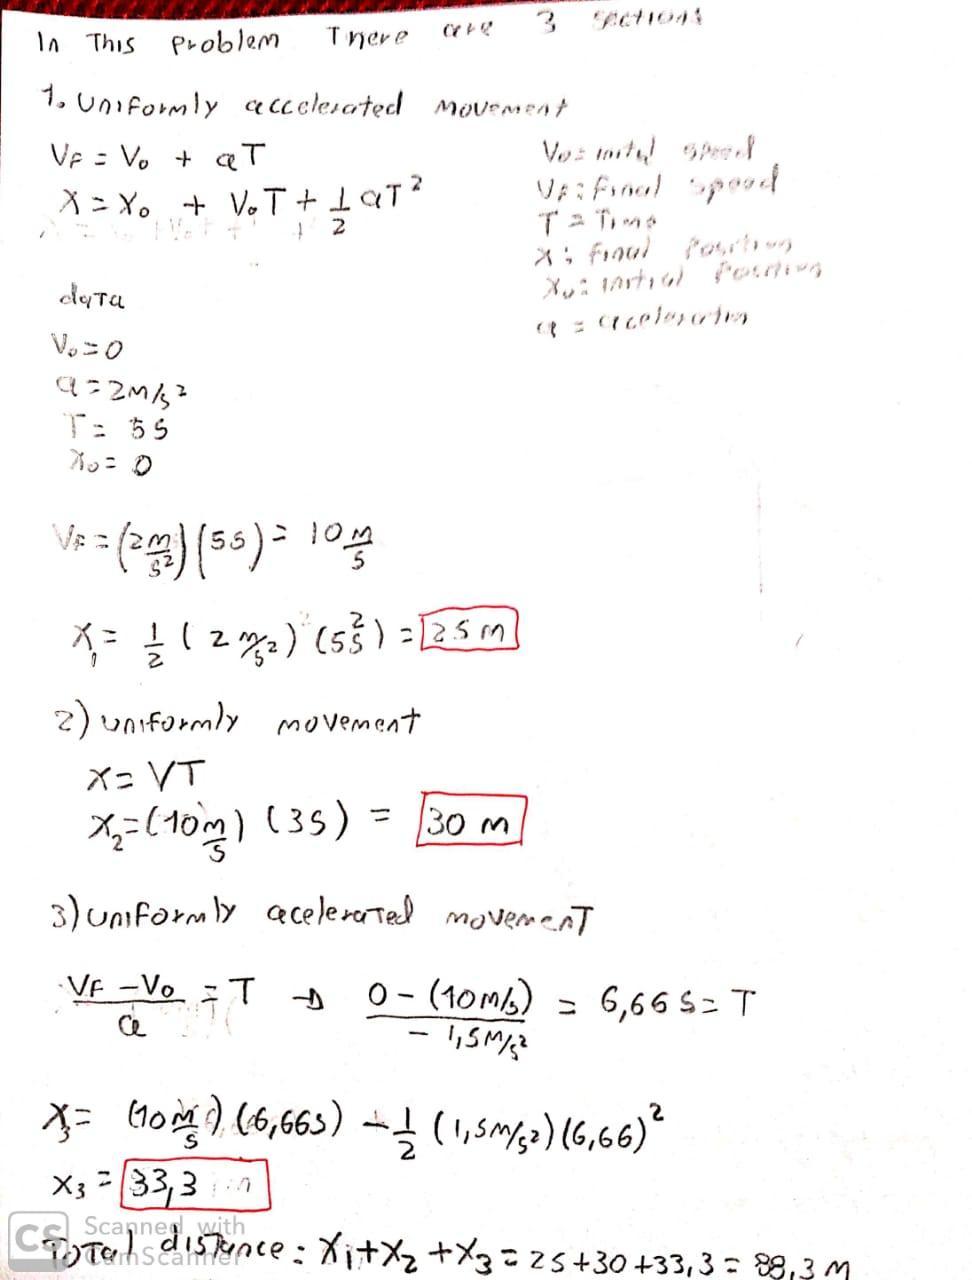 In This Problem There are 3 sections
1. Uniformly accelerated Movement
VF = Vo + aT
X = Xo + VoT + 1/2 aT²
Vo= initial speed
VF: final speed
T = Time
X: final Position
Xo: initial Position
a = aceleration
data
Vo=0
a=2M/s²
T= 5s
Xo= 0
VF = (2m/s²)(5s) = 10 M/s
X₁= 1/2 (2 m/s²)(5s²) = 25 m
2) uniformly movement
X= VT
X₂=(10m/s) (3s) = 30 m
3) Uniformly acelerated movement
VF - Vo / a = T → 0 - (10M/s) / - 1,5M/s² = 6,66 s= T
X₃= (10M/s) (6,66s) - 1/2 (1,5M/s²)(6,66)²
X₃ = 33,3 m
CS Scanned with CamScanner
Total distance: X₁+X₂+X₃ = 25+30+33,3 = 88,3 M